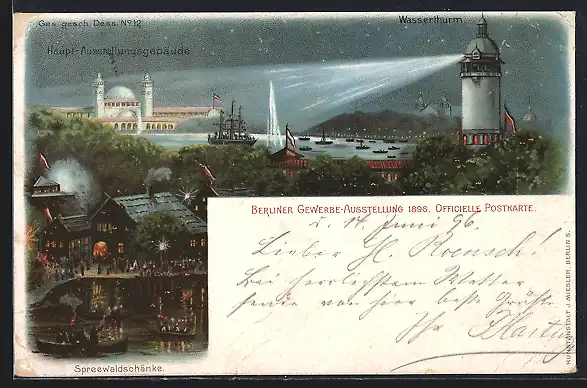 Ges. gesch. Dess. No 12.
Wasserthurm.
Haupt-Ausstellungsgebäude
Berliner Gewerbe-Ausstellung 1896. Officielle Postkarte.
d. 14 Juni 96.
Lieber H. Roensch!
Bei herrlichstem Wetter
sende von hier beste Grüße
Ihr
Spreewaldschänke.
Kunstanstalt J. Miesler, Berlin S.